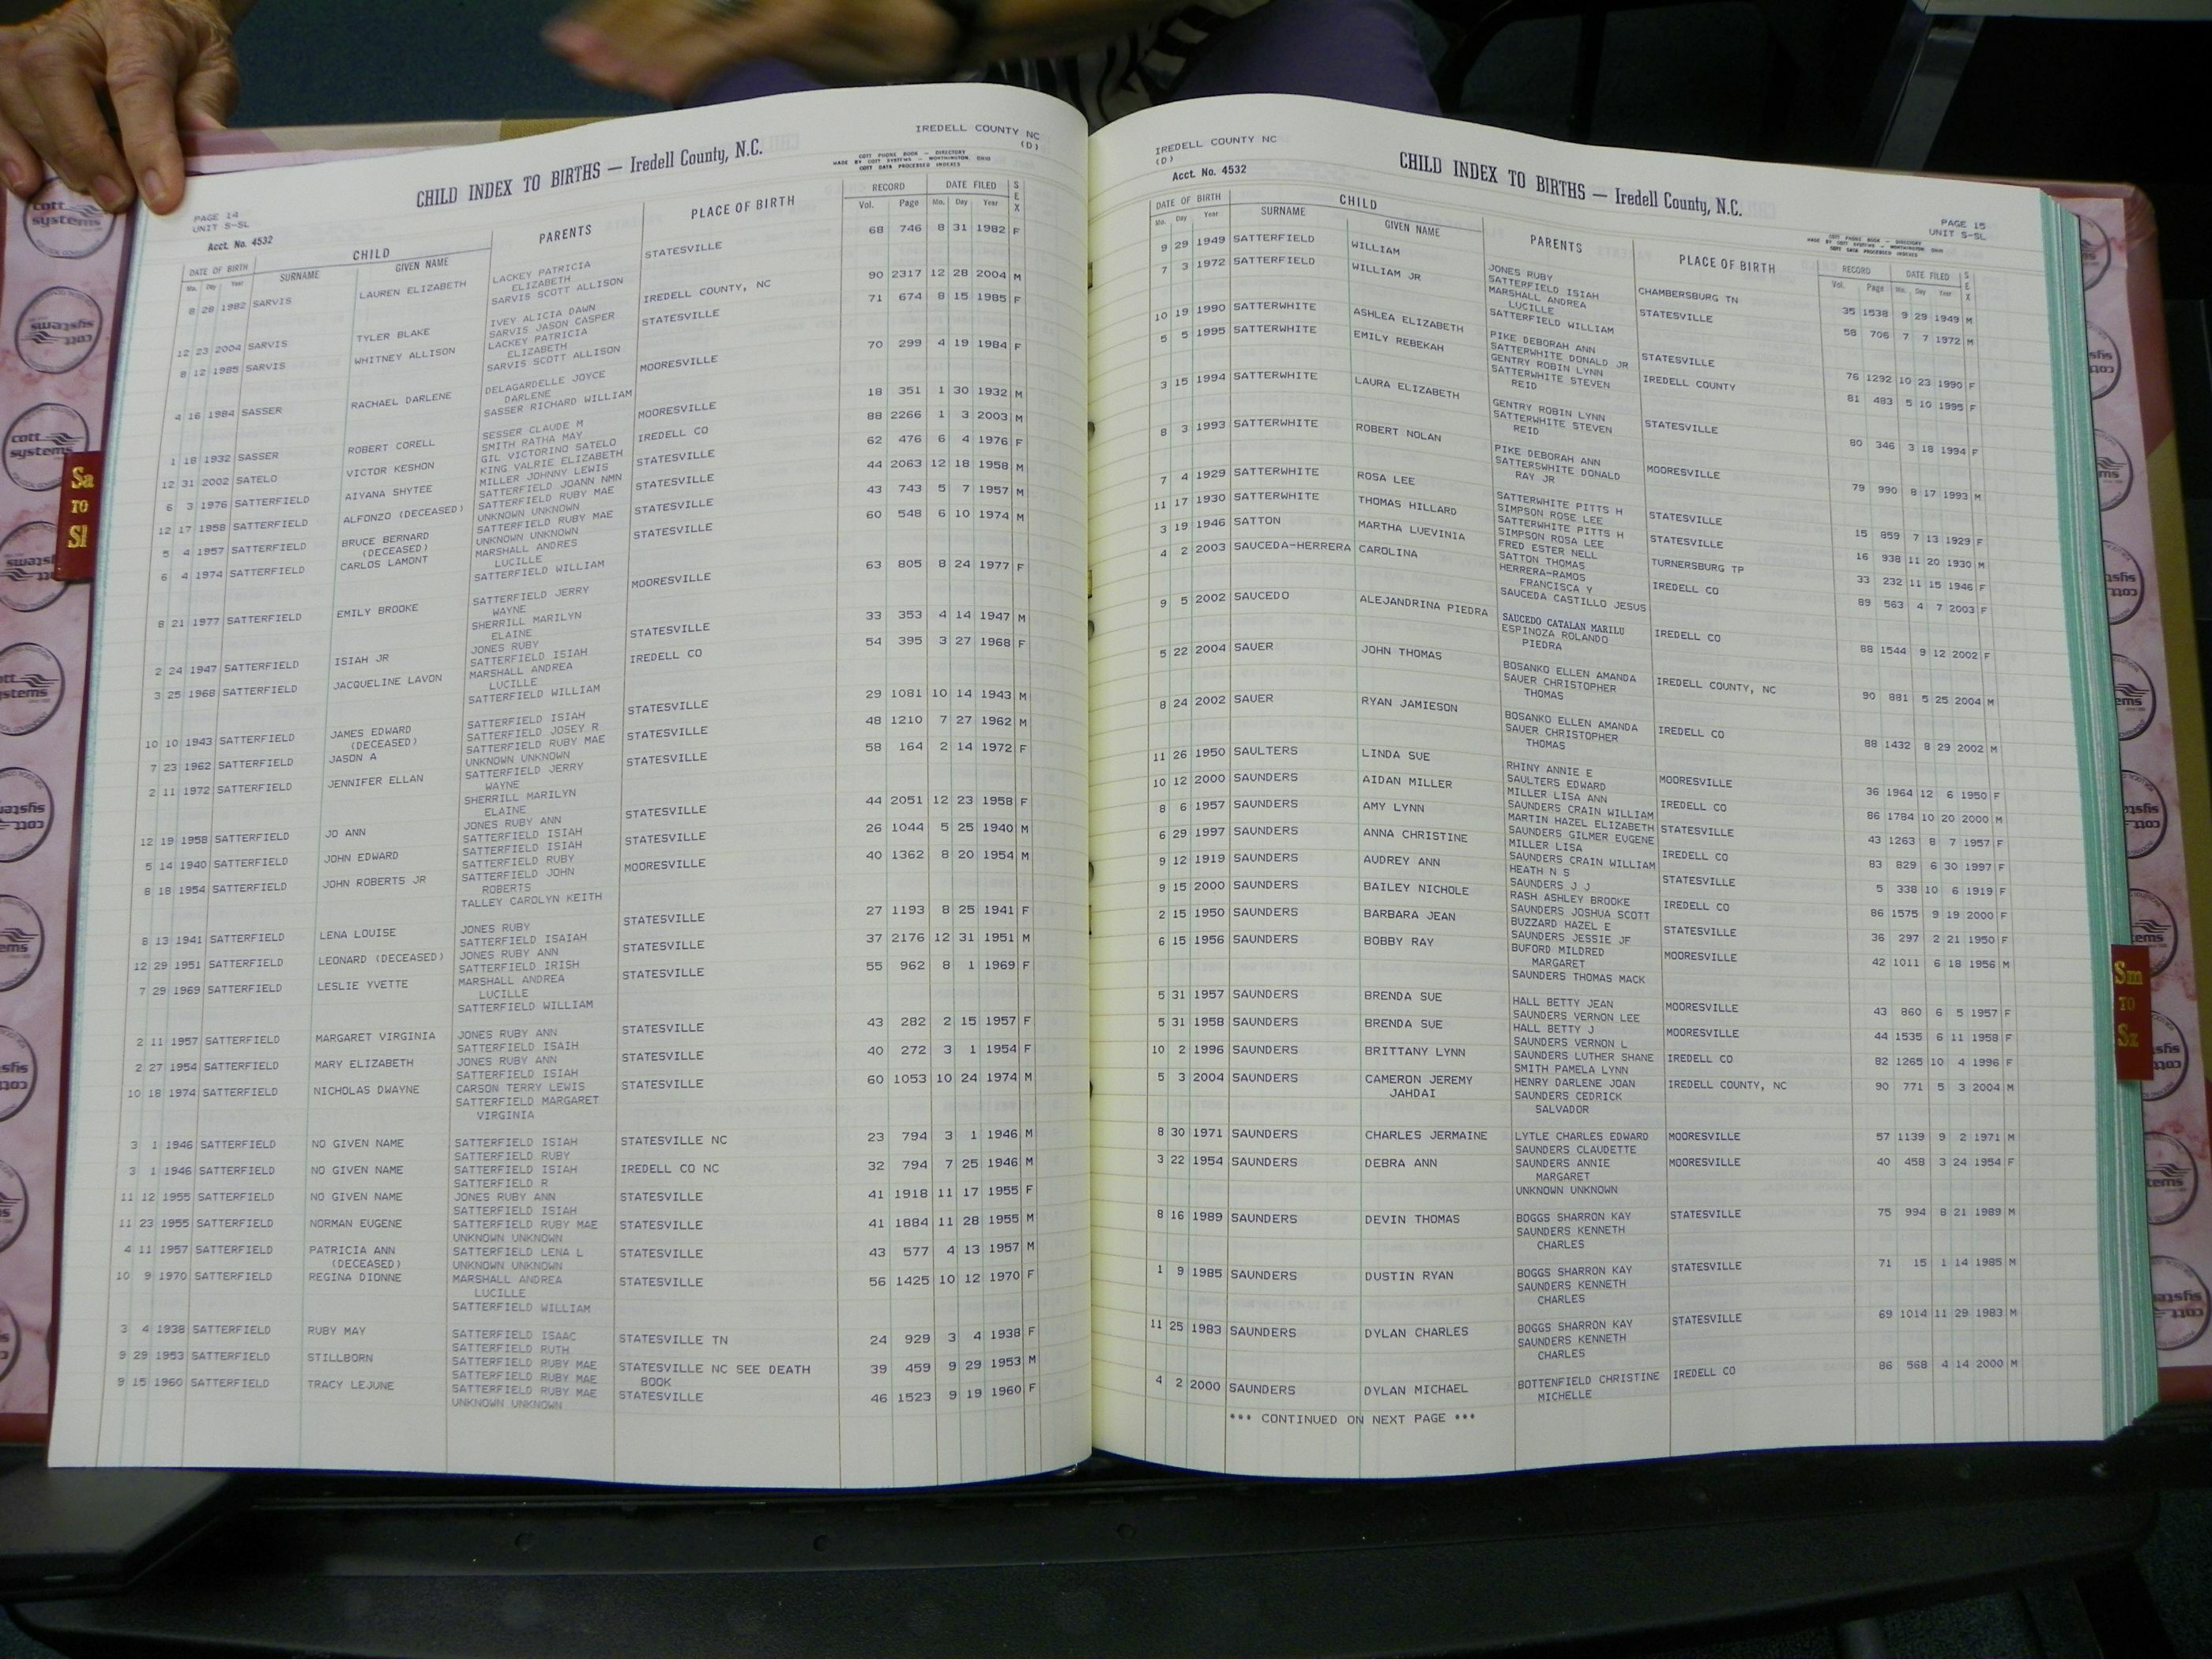 IREDELL COUNTY NC
(D)
CHILD INDEX TO BIRTHS — Iredell County, N.C.
COTT PHONE BOOK — DIRECTORY
MADE BY COTT SYSTEMS — WORTHINGTON, OHIO
COTT DATA PROCESSED INDEXES
PAGE 14
UNIT S-SL
Acct. No. 4532
DATE OF BIRTH CHILD PARENTS PLACE OF BIRTH RECORD DATE FILED SEX
Mo. Day Year SURNAME GIVEN NAME Vol. Page Mo. Day Year
8 28 1982 SARVIS LAUREN ELIZABETH LACKEY PATRICIA STATESVILLE 68 746 8 31 1982 F
ELIZABETH
SARVIS SCOTT ALLISON
12 23 2004 SARVIS TYLER BLAKE IVEY ALICIA DAWN IREDELL COUNTY, NC 90 2317 12 28 2004 M
SARVIS JASON CASPER
8 12 1985 SARVIS WHITNEY ALLISON LACKEY PATRICIA STATESVILLE 71 674 8 15 1985 F
ELIZABETH
SARVIS SCOTT ALLISON
4 16 1984 SASSER RACHAEL DARLENE DELAGARDELLE JOYCE MOORESVILLE 70 299 4 19 1984 F
DARLENE
SASSER RICHARD WILLIAM
1 18 1932 SASSER ROBERT CORELL SESSER CLAUDE M MOORESVILLE 18 351 1 30 1932 M
SMITH RATHA MAY
12 31 2002 SATELO VICTOR KESHON GIL VICTORINO SATELO IREDELL CO 88 2266 1 3 2003 M
KING VALRIE ELIZABETH
6 3 1976 SATTERFIELD AIYANA SHYTEE MILLER JOHNNY LEWIS STATESVILLE 62 476 6 4 1976 F
SATTERFIELD JOANN NMN
12 17 1958 SATTERFIELD ALFONZO (DECEASED) SATTERFIELD RUBY MAE STATESVILLE 44 2063 12 18 1958 M
UNKNOWN UNKNOWN
5 4 1957 SATTERFIELD BRUCE BERNARD SATTERFIELD RUBY MAE STATESVILLE 43 743 5 7 1957 M
(DECEASED) UNKNOWN UNKNOWN
6 4 1974 SATTERFIELD CARLOS LAMONT MARSHALL ANDRES STATESVILLE 60 548 6 10 1974 M
LUCILLE
SATTERFIELD WILLIAM
8 21 1977 SATTERFIELD EMILY BROOKE SATTERFIELD JERRY MOORESVILLE 63 805 8 24 1977 F
WAYNE
SHERRILL MARILYN
ELAINE
2 24 1947 SATTERFIELD ISIAH JR JONES RUBY STATESVILLE 33 353 4 14 1947 M
SATTERFIELD ISIAH
3 25 1968 SATTERFIELD JACQUELINE LAVON MARSHALL ANDREA IREDELL CO 54 395 3 27 1968 F
LUCILLE
SATTERFIELD WILLIAM
10 10 1943 SATTERFIELD JAMES EDWARD SATTERFIELD ISIAH STATESVILLE 29 1081 10 14 1943 M
(DECEASED) SATTERFIELD JOSEY R
7 23 1962 SATTERFIELD JASON A SATTERFIELD RUBY MAE STATESVILLE 48 1210 7 27 1962 M
UNKNOWN UNKNOWN
2 11 1972 SATTERFIELD JENNIFER ELLAN SATTERFIELD JERRY STATESVILLE 58 164 2 14 1972 F
WAYNE
SHERRILL MARILYN
ELAINE
12 19 1958 SATTERFIELD JO ANN JONES RUBY ANN STATESVILLE 44 2051 12 23 1958 F
SATTERFIELD ISIAH
5 14 1940 SATTERFIELD JOHN EDWARD SATTERFIELD ISIAH STATESVILLE 26 1044 5 25 1940 M
SATTERFIELD RUBY
8 18 1954 SATTERFIELD JOHN ROBERTS JR SATTERFIELD JOHN MOORESVILLE 40 1362 8 20 1954 M
ROBERTS
TALLEY CAROLYN KEITH
8 13 1941 SATTERFIELD LENA LOUISE JONES RUBY STATESVILLE 27 1193 8 25 1941 F
SATTERFIELD ISAIAH
12 29 1951 SATTERFIELD LEONARD (DECEASED) JONES RUBY ANN STATESVILLE 37 2176 12 31 1951 M
SATTERFIELD IRISH
7 29 1969 SATTERFIELD LESLIE YVETTE MARSHALL ANDREA STATESVILLE 55 962 8 1 1969 F
LUCILLE
SATTERFIELD WILLIAM
2 11 1957 SATTERFIELD MARGARET VIRGINIA JONES RUBY ANN STATESVILLE 43 282 2 15 1957 F
SATTERFIELD ISAIH
2 27 1954 SATTERFIELD MARY ELIZABETH JONES RUBY ANN STATESVILLE 40 272 3 1 1954 F
SATTERFIELD ISIAH
10 18 1974 SATTERFIELD NICHOLAS DWAYNE CARSON TERRY LEWIS STATESVILLE 60 1053 10 24 1974 M
SATTERFIELD MARGARET
VIRGINIA
3 1 1946 SATTERFIELD NO GIVEN NAME SATTERFIELD ISIAH STATESVILLE NC 23 794 3 1 1946 M
SATTERFIELD RUBY
3 1 1946 SATTERFIELD NO GIVEN NAME SATTERFIELD ISIAH IREDELL CO NC 32 794 7 25 1946 M
SATTERFIELD R
11 12 1955 SATTERFIELD NO GIVEN NAME JONES RUBY ANN STATESVILLE 41 1918 11 17 1955 F
SATTERFIELD ISIAH
11 23 1955 SATTERFIELD NORMAN EUGENE SATTERFIELD RUBY MAE STATESVILLE 41 1884 11 28 1955 M
UNKNOWN UNKNOWN
4 11 1957 SATTERFIELD PATRICIA ANN SATTERFIELD LENA L STATESVILLE 43 577 4 13 1957 M
(DECEASED) UNKNOWN UNKNOWN
10 9 1970 SATTERFIELD REGINA DIONNE MARSHALL ANDREA STATESVILLE 56 1425 10 12 1970 F
LUCILLE
SATTERFIELD WILLIAM
3 4 1938 SATTERFIELD RUBY MAY SATTERFIELD ISAAC STATESVILLE TN 24 929 3 4 1938 F
SATTERFIELD RUTH
9 29 1953 SATTERFIELD STILLBORN SATTERFIELD RUBY MAE STATESVILLE NC SEE DEATH 39 459 9 29 1953 M
SATTERFIELD RUBY MAE BOOK
9 15 1960 SATTERFIELD TRACY LEJUNE SATTERFIELD RUBY MAE STATESVILLE 46 1523 9 19 1960 F
UNKNOWN UNKNOWN
IREDELL COUNTY NC
(D)
Acct. No. 4532
CHILD INDEX TO BIRTHS — Iredell County, N.C.
PAGE 15
UNIT S-SL
COTT PHONE BOOK — DIRECTORY
MADE BY COTT SYSTEMS — WORTHINGTON, OHIO
COTT DATA PROCESSED INDEXES
DATE OF BIRTH CHILD PARENTS PLACE OF BIRTH RECORD DATE FILED SEX
Mo. Day Year SURNAME GIVEN NAME Vol. Page Mo. Day Year
9 29 1949 SATTERFIELD WILLIAM JONES RUBY CHAMBERSBURG TN 35 1538 9 29 1949 M
SATTERFIELD ISIAH
7 3 1972 SATTERFIELD WILLIAM JR MARSHALL ANDREA STATESVILLE 58 706 7 7 1972 M
LUCILLE
SATTERFIELD WILLIAM
10 19 1990 SATTERWHITE ASHLEA ELIZABETH PIKE DEBORAH ANN STATESVILLE 76 1292 10 23 1990 F
SATTERWHITE DONALD JR
5 5 1995 SATTERWHITE EMILY REBEKAH GENTRY ROBIN LYNN IREDELL COUNTY 81 483 5 10 1995 F
SATTERWHITE STEVEN
REID
3 15 1994 SATTERWHITE LAURA ELIZABETH GENTRY ROBIN LYNN STATESVILLE 80 346 3 18 1994 F
SATTERWHITE STEVEN
REID
8 3 1993 SATTERWHITE ROBERT NOLAN PIKE DEBORAH ANN MOORESVILLE 79 990 8 17 1993 M
SATTERSWHITE DONALD
RAY JR
7 4 1929 SATTERWHITE ROSA LEE SATTERWHITE PITTS H STATESVILLE 15 859 7 13 1929 F
SIMPSON ROSE LEE
11 17 1930 SATTERWHITE THOMAS HILLARD SATTERWHITE PITTS H STATESVILLE 16 938 11 20 1930 M
SIMPSON ROSA LEE
3 19 1946 SATTON MARTHA LUEVINIA FRED ESTER NELL TURNERSBURG TP 33 232 11 15 1946 F
SATTON THOMAS
4 2 2003 SAUCEDA-HERRERA CAROLINA HERRERA-RAMOS IREDELL CO 89 563 4 7 2003 F
FRANCISCA Y
SAUCEDA CASTILLO JESUS
9 5 2002 SAUCEDO ALEJANDRINA PIEDRA SAUCEDO CATALAN MARILU IREDELL CO 88 1544 9 12 2002 F
ESPINOZA ROLANDO
PIEDRA
5 22 2004 SAUER JOHN THOMAS BOSANKO ELLEN AMANDA IREDELL COUNTY, NC 90 881 5 25 2004 M
SAUER CHRISTOPHER
THOMAS
8 24 2002 SAUER RYAN JAMIESON BOSANKO ELLEN AMANDA IREDELL CO 88 1432 8 29 2002 M
SAUER CHRISTOPHER
THOMAS
11 26 1950 SAULTERS LINDA SUE RHINY ANNIE E MOORESVILLE 36 1964 12 6 1950 F
SAULTERS EDWARD
10 12 2000 SAUNDERS AIDAN MILLER MILLER LISA ANN IREDELL CO 86 1784 10 20 2000 M
SAUNDERS CRAIN WILLIAM
8 6 1957 SAUNDERS AMY LYNN MARTIN HAZEL ELIZABETH STATESVILLE 43 1263 8 7 1957 F
SAUNDERS GILMER EUGENE
6 29 1997 SAUNDERS ANNA CHRISTINE MILLER LISA IREDELL CO 83 829 6 30 1997 F
SAUNDERS CRAIN WILLIAM
9 12 1919 SAUNDERS AUDREY ANN HEATH N S STATESVILLE 5 338 10 6 1919 F
SAUNDERS J J
9 15 2000 SAUNDERS BAILEY NICHOLE RASH ASHLEY BROOKE IREDELL CO 86 1575 9 19 2000 F
SAUNDERS JOSHUA SCOTT
2 15 1950 SAUNDERS BARBARA JEAN BUZZARD HAZEL E STATESVILLE 36 297 2 21 1950 F
SAUNDERS JESSIE JF
6 15 1956 SAUNDERS BOBBY RAY BUFORD MILDRED MOORESVILLE 42 1011 6 18 1956 M
MARGARET
SAUNDERS THOMAS MACK
5 31 1957 SAUNDERS BRENDA SUE HALL BETTY JEAN MOORESVILLE 43 860 6 5 1957 F
SAUNDERS VERNON LEE
5 31 1958 SAUNDERS BRENDA SUE HALL BETTY J MOORESVILLE 44 1535 6 11 1958 F
SAUNDERS VERNON L
10 2 1996 SAUNDERS BRITTANY LYNN SAUNDERS LUTHER SHANE IREDELL CO 82 1265 10 4 1996 F
SMITH PAMELA LYNN
5 3 2004 SAUNDERS CAMERON JEREMY HENRY DARLENE JOAN IREDELL COUNTY, NC 90 771 5 3 2004 M
JAHDAI SAUNDERS CEDRICK
SALVADOR
8 30 1971 SAUNDERS CHARLES JERMAINE LYTLE CHARLES EDWARD MOORESVILLE 57 1139 9 2 1971 M
SAUNDERS CLAUDETTE
3 22 1954 SAUNDERS DEBRA ANN SAUNDERS ANNIE MOORESVILLE 40 458 3 24 1954 F
MARGARET
UNKNOWN UNKNOWN
8 16 1989 SAUNDERS DEVIN THOMAS BOGGS SHARRON KAY STATESVILLE 75 994 8 21 1989 M
SAUNDERS KENNETH
CHARLES
1 9 1985 SAUNDERS DUSTIN RYAN BOGGS SHARRON KAY STATESVILLE 71 15 1 14 1985 M
SAUNDERS KENNETH
CHARLES
11 25 1983 SAUNDERS DYLAN CHARLES BOGGS SHARRON KAY STATESVILLE 69 1014 11 29 1983 M
SAUNDERS KENNETH
CHARLES
4 2 2000 SAUNDERS DYLAN MICHAEL BOTTENFIELD CHRISTINE IREDELL CO 86 568 4 14 2000 M
MICHELLE
*** CONTINUED ON NEXT PAGE ***
Sa
TO
Sl
Sm
TO
Sz
cott
systems
cott
systems